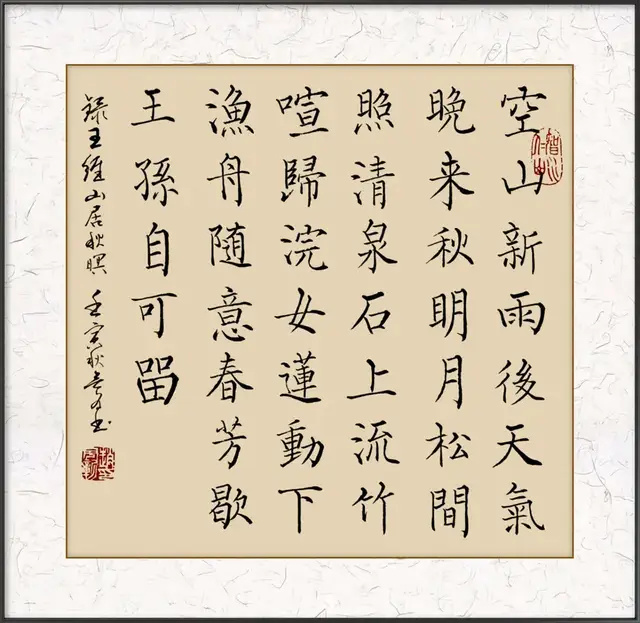 空山新雨後天氣
晚来秋明月松間
照清泉石上流竹
喧歸浣女蓮動下
漁舟随意春芳歇
王孫自可㽞
録王維山居秋暝 壬寅秋书